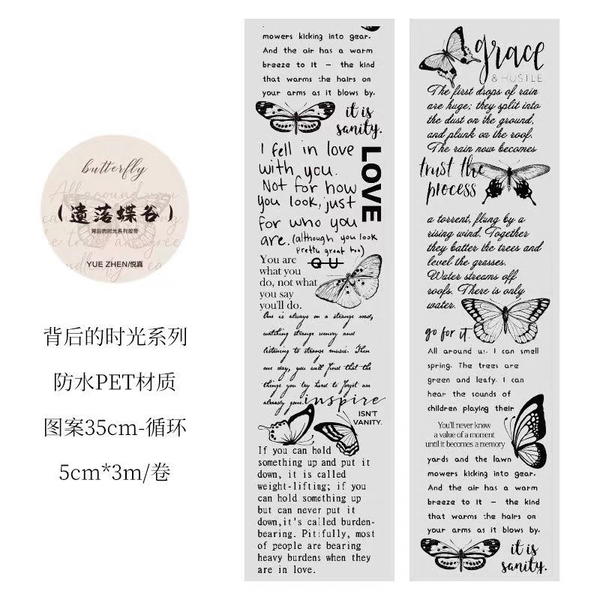 butterfly
（遗落蝶谷）
背后的时光系列胶带
YUE ZHEN/悦真
背后的时光系列
防水PET材质
图案35cm-循环
5cm*3m/卷
mowers kicking into gear.
And the air has a warm
breeze to it – the kind
that warms the hairs on
your arms as it blows by.
it is
sanity.
I fell in love
with you.
Not for how
you look, just
for who you
are. (although you look
pretty great too)
LOVE
You are
what you
do, not what
you say
you'll do.
QU
One is always on a strange road,
watching strange scenery and
listening to strange music. Then
one day, you will find that the
things you try hard to forget are
already gone.
inspire
ISN'T
VANITY.
If you can hold
something up and put it
down, it is called
weight-lifting; if you
can hold something up
but can never put it
down,it's called burden-
bearing. Pitifully, most
of people are bearing
heavy burdens when they
are in love.
grace
& HUSTLE
The first drops of rain
are huge; they split into
the dust on the ground,
and plunk on the roof.
The rain now becomes
trust the
process
a torrent, flung by a
rising wind. Together
they batter the trees and
level the grasses.
Water streams off
roofs. There is only
water.
go for it.
All around us. I can smell
spring. The trees are
green and leafy. I can
hear the sounds of
children playing their
You'll never know
a value of a moment
until it becomes a memory
yards and the lawn
mowers kicking into gear.
And the air has a warm
breeze to it – the kind
that warms the hairs on
your arms as it blows by.
it is
sanity.